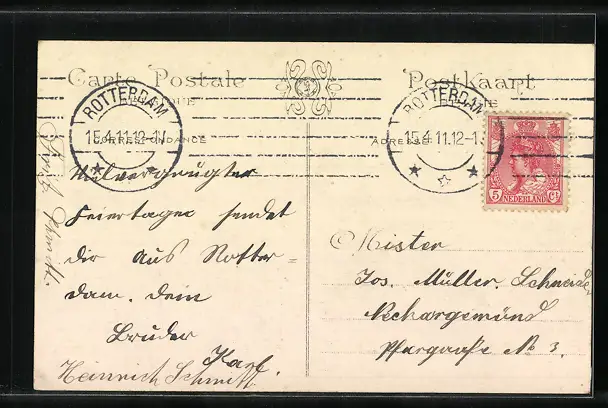 Carte Postale
Postkaart
ROTTERDAM
15.4.11.12-1
CORRESPONDANCE
ROTTERDAM
15.4.11.12-1
ADRESSE
5 Ct
NEDERLAND
Feiertage sendet
dir aus Rotter=
dam. dein
Bruder
Karl.
Heinrich Schmitt
Fritz Schmitt.
Mister
Jos. Müller, Schneider
Neckargemünd
Pfargasse No 3.